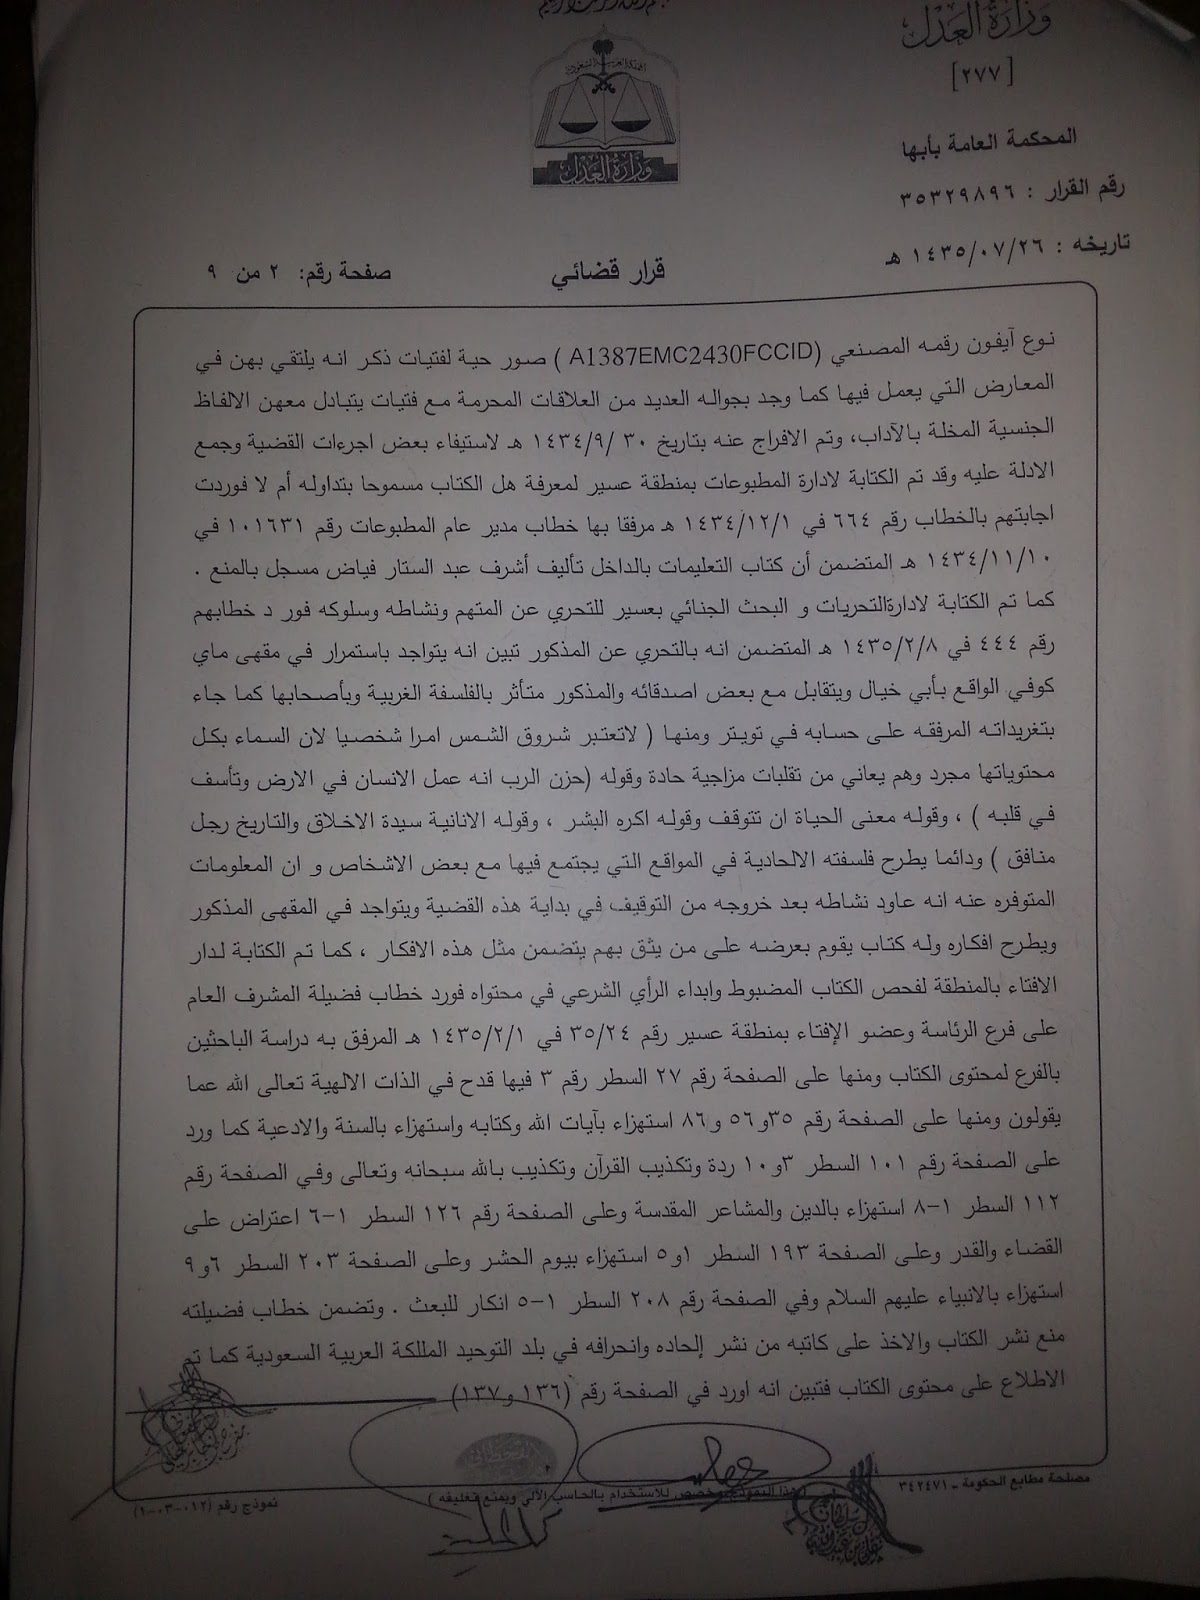 وزارة العدل
[٢٧٧]
المملكة العربية السعودية
وزارة العدل
المحكمة العامة بأبها
رقم القرار : ٣٥٣٢٩٨٩٦
تاريخه : ١٤٣٥/٠٧/٢٦ هـ
قرار قضائي
صفحة رقم: ٢ من ٩
نوع آيفون رقمه المصنعي (A1387EMC2430FCCID ) صور حية لفتيات ذكر انه يلتقي بهن في
المعارض التي يعمل فيها كما وجد بجواله العديد من العلاقات المحرمة مع فتيات يتبادل معهن الالفاظ
الجنسية المخلة بالآداب، وتم الافراج عنه بتاريخ ٣٠ /١٤٣٤/٩ هـ لاستيفاء بعض اجرءات القضية وجمع
الادلة عليه وقد تم الكتابة لادارة المطبوعات بمنطقة عسير لمعرفة هل الكتاب مسموحا بتداوله أم لا فوردت
اجابتهم بالخطاب رقم ٦٦٤ في ١٤٣٤/١٢/١ هـ مرفقا بها خطاب مدير عام المطبوعات رقم ١٠١٦٣١ في
١٤٣٤/١١/١٠ هـ المتضمن أن كتاب التعليمات بالداخل تأليف أشرف عبد الستار فياض مسجل بالمنع .
كما تم الكتابة لادارةالتحريات و البحث الجنائي بعسير للتحري عن المتهم ونشاطه وسلوكه فور د خطابهم
رقم ٤٤٤ في ١٤٣٥/٢/٨ هـ المتضمن انه بالتحري عن المذكور تبين انه يتواجد باستمرار في مقهى ماي
كوفي الواقع بأبي خيال ويتقابل مع بعض اصدقائه والمذكور متأثر بالفلسفة الغربية وبأصحابها كما جاء
بتغريداته المرفقه على حسابه في تويتر ومنها ( لاتعتبر شروق الشمس امرا شخصيا لان السماء بكل
محتوياتها مجرد وهم يعاني من تقلبات مزاجية حادة وقوله (حزن الرب انه عمل الانسان في الارض وتأسف
في قلبه ) ، وقوله معنى الحياة ان تتوقف وقوله اكره البشر ، وقوله الانانية سيدة الاخلاق والتاريخ رجل
منافق ) ودائما يطرح فلسفته الالحادية في المواقع التي يجتمع فيها مع بعض الاشخاص و ان المعلومات
المتوفره عنه انه عاود نشاطه بعد خروجه من التوقيف في بداية هذه القضية ويتواجد في المقهى المذكور
ويطرح افكاره وله كتاب يقوم بعرضه على من يثق بهم يتضمن مثل هذه الافكار ، كما تم الكتابة لدار
الافتاء بالمنطقة لفحص الكتاب المضبوط وابداء الرأي الشرعي في محتواه فورد خطاب فضيلة المشرف العام
على فرع الرئاسة وعضو الإفتاء بمنطقة عسير رقم ٣٥/٢٤ في ١٤٣٥/٢/١ هـ المرفق به دراسة الباحثين
بالفرع لمحتوى الكتاب ومنها على الصفحة رقم ٢٧ السطر رقم ٣ فيها قدح في الذات الالهية تعالى الله عما
يقولون ومنها على الصفحة رقم ٣٥و٥٦ و٨٦ استهزاء بآيات الله وكتابه واستهزاء بالسنة والادعية كما ورد
على الصفحة رقم ١٠١ السطر ٣و١٠ ردة وتكذيب القرآن وتكذيب بالله سبحانه وتعالى وفي الصفحة رقم
١١٢ السطر ١-٨ استهزاء بالدين والمشاعر المقدسة وعلى الصفحة رقم ١٢٦ السطر ١-٦ اعتراض على
القضاء والقدر وعلى الصفحة ١٩٣ السطر ١و٥ استهزاء بيوم الحشر وعلى الصفحة ٢٠٣ السطر ٦و٩
استهزاء بالانبياء عليهم السلام وفي الصفحة رقم ٢٠٨ السطر ١-٥ انكار للبعث . وتضمن خطاب فضيلته
منع نشر الكتاب والاخذ على كاتبه من نشر إلحاده وانحرافه في بلد التوحيد المللكة العربية السعودية كما تم
الاطلاع على محتوى الكتاب فتبين انه اورد في الصفحة رقم (١٣٦ و١٣٧)
مصلحة مطابع الحكومة - ٣٤٢٤٧١
(هذا النموذج مخصص للاستخدام بالحاسب الآلي ويمنع تغليفه )
نموذج رقم (١٢-٠٣-٠١)